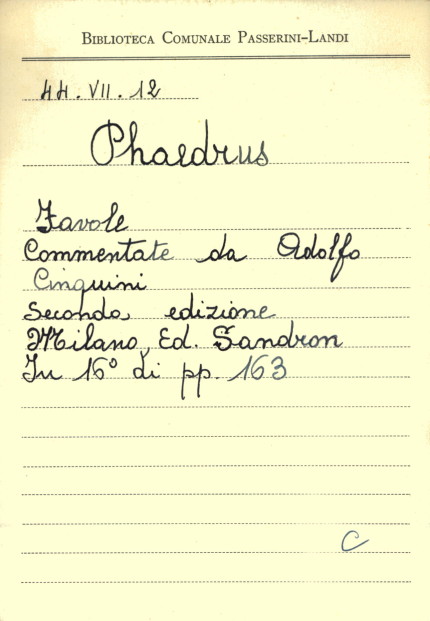 BIBLIOTECA COMUNALE PASSERINI-LANDI
44.VII.12
Phaedrus
Favole
Commentate da Adolfo
Cinquini
Seconda edizione
Milano, Ed. Sandron
In 16° di pp. 163
C